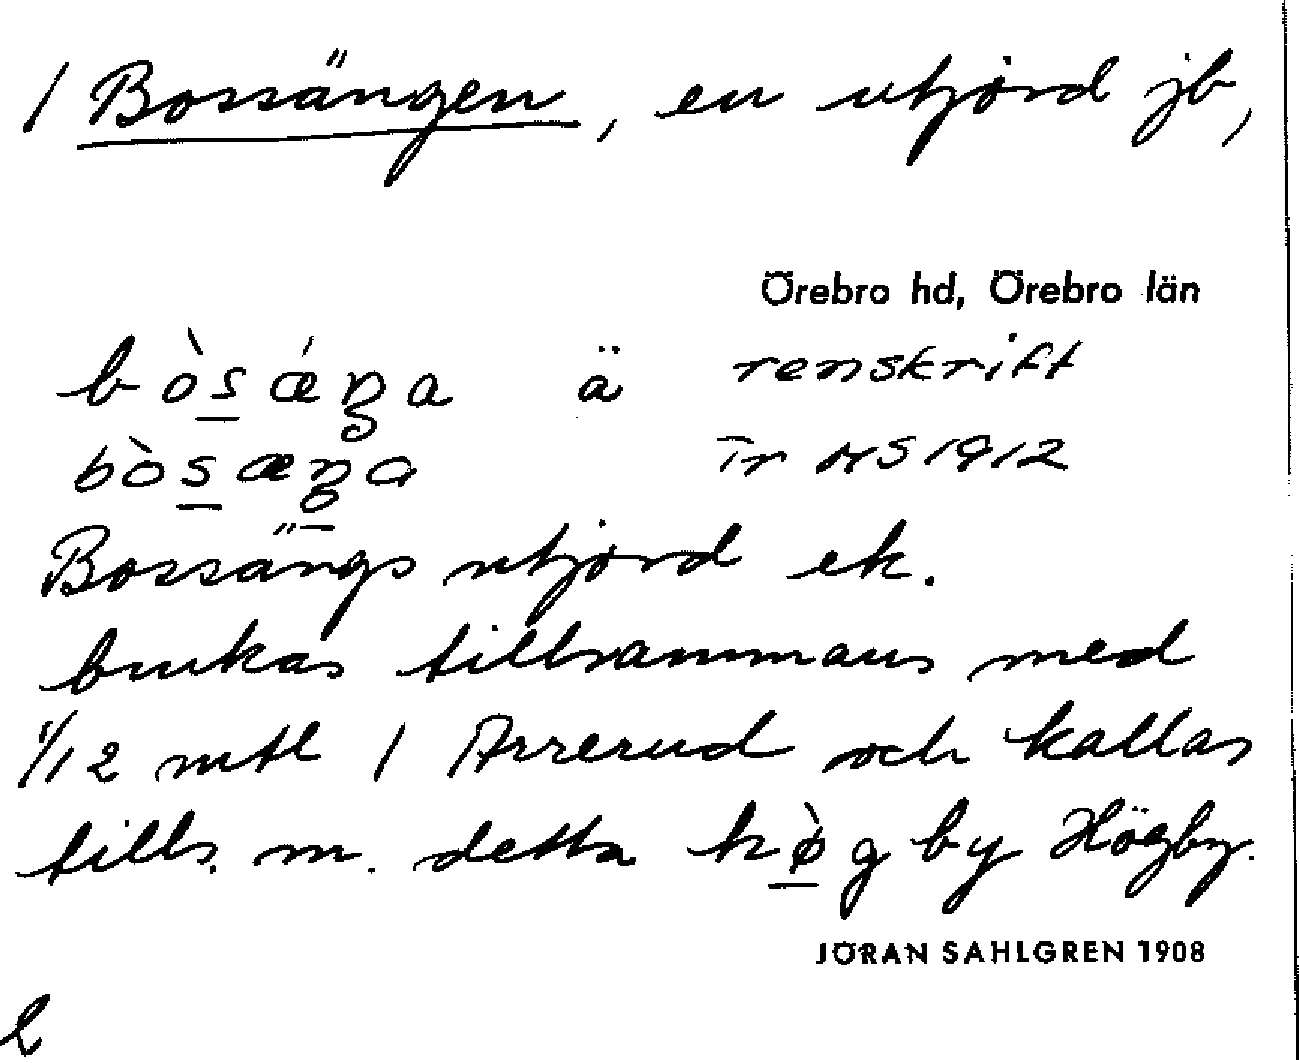 / Bossängen, en utjord jb,
Örebro hd, Örebro län
bòsǽŋa ä renskrift
bòsæŋa Tr MS 1912
Bossängs utjord ek.
brukas tillsammans med
1/12 mtl / Arrerud och kallas
tills. m. detta hø̀gby Högby.
JÖRAN SAHLGREN 1908